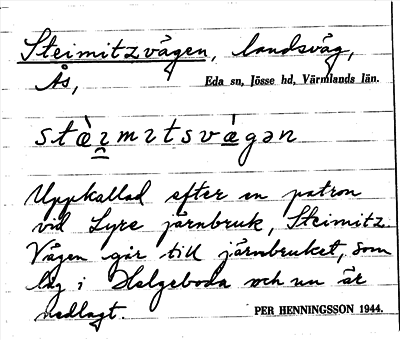 Steimitzvägen, landsväg,
Ås, Eda sn, Jösse hd, Värmlands län.
stæ̀ɪmɪtsvæ̀gən
Uppkallad efter en patron
vid Lyre järnbruk, Steimitz.
Vägen går till järnbruket, som
låg i Helgeboda och nu är
nedlagt. PER HENNINGSSON 1944.